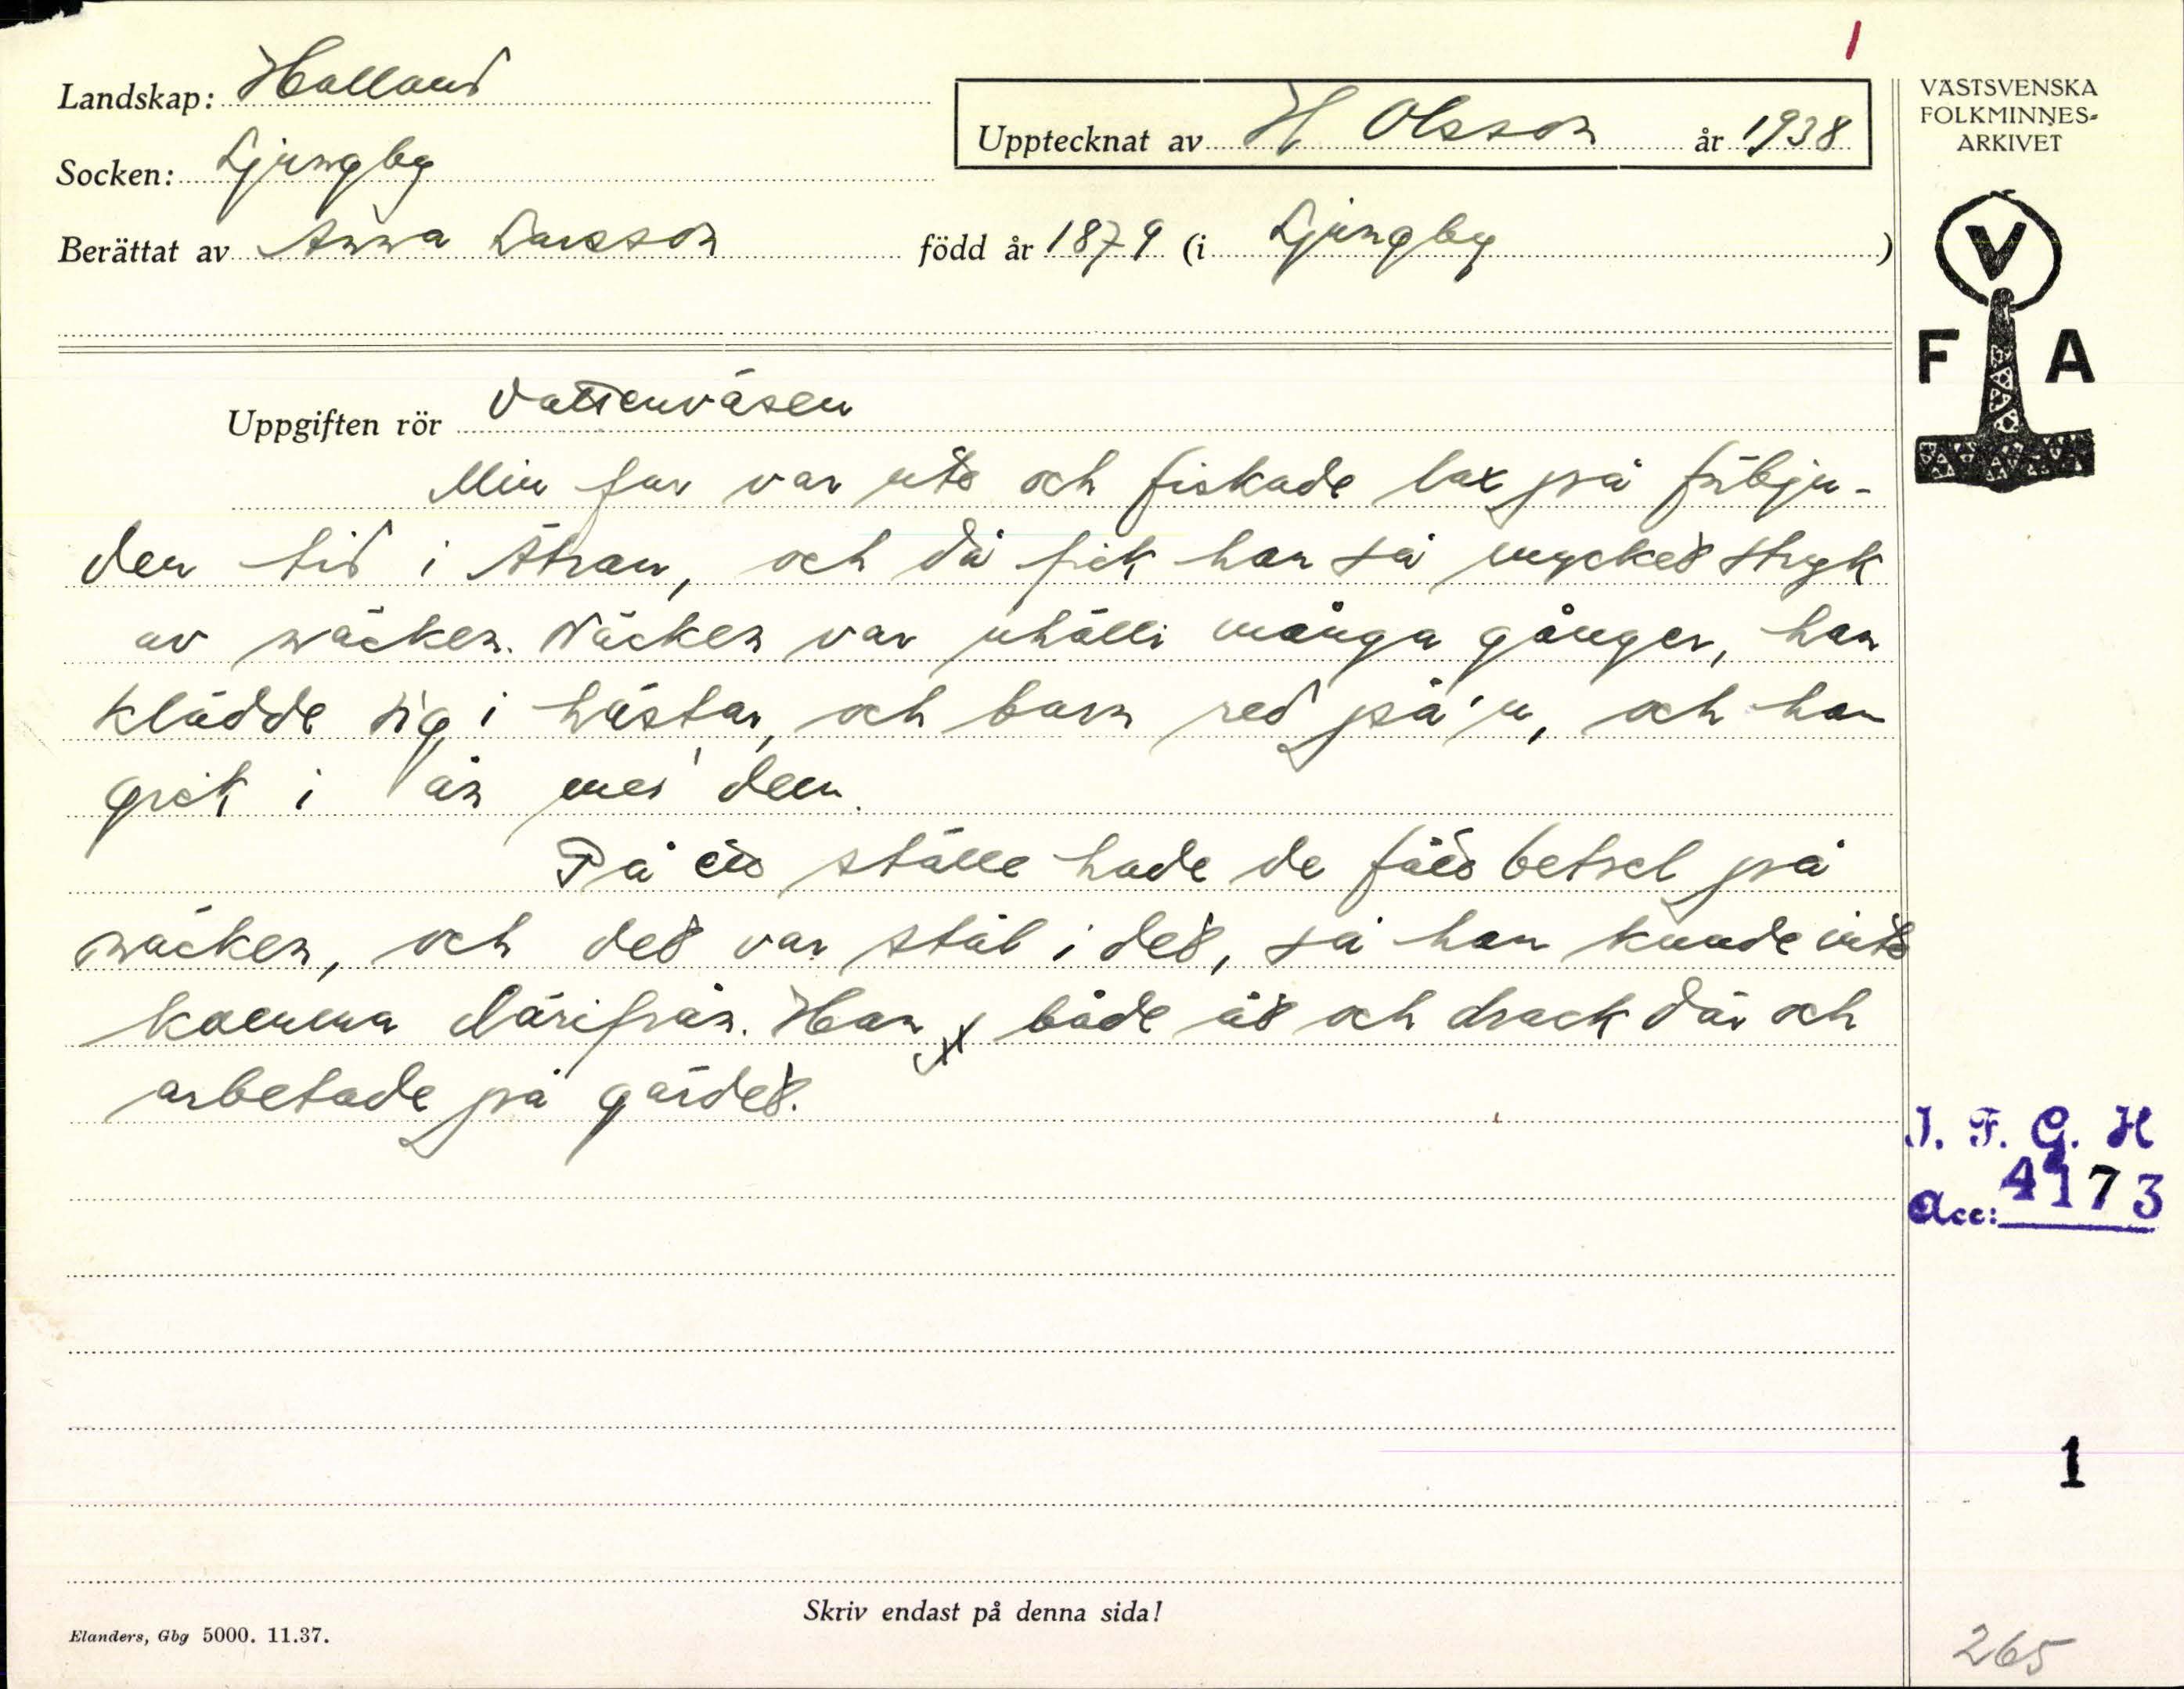 1
Landskap: Halland
Upptecknat av H Olsson år 1938
VÄSTSVENSKA
FOLKMINNES-
ARKIVET
Socken: Ljungby
Berättat av Anna Larsson född år 1879 (i Ljungby )
V
F A
Uppgiften rör Vattenväsen
Min far var ute och fiskade lax på förbju-
den tid i Ätran, och då fick han så mycket stryk
av näcken. Näcken var uhälli många gånger, han
klädde sig i hästar, och barn red på'n, och han
gick i ån me' dem.
På ett ställe hade de fått betsel på
näcken, och det var stål i det, så han kunde inte
komma därifrån. Han både åt och drack där och
arbetade på gärdet.
I. F. G. H
Acc: 4173
1
Skriv endast på denna sida!
Elanders, Gbg 5000. 11.37.
265